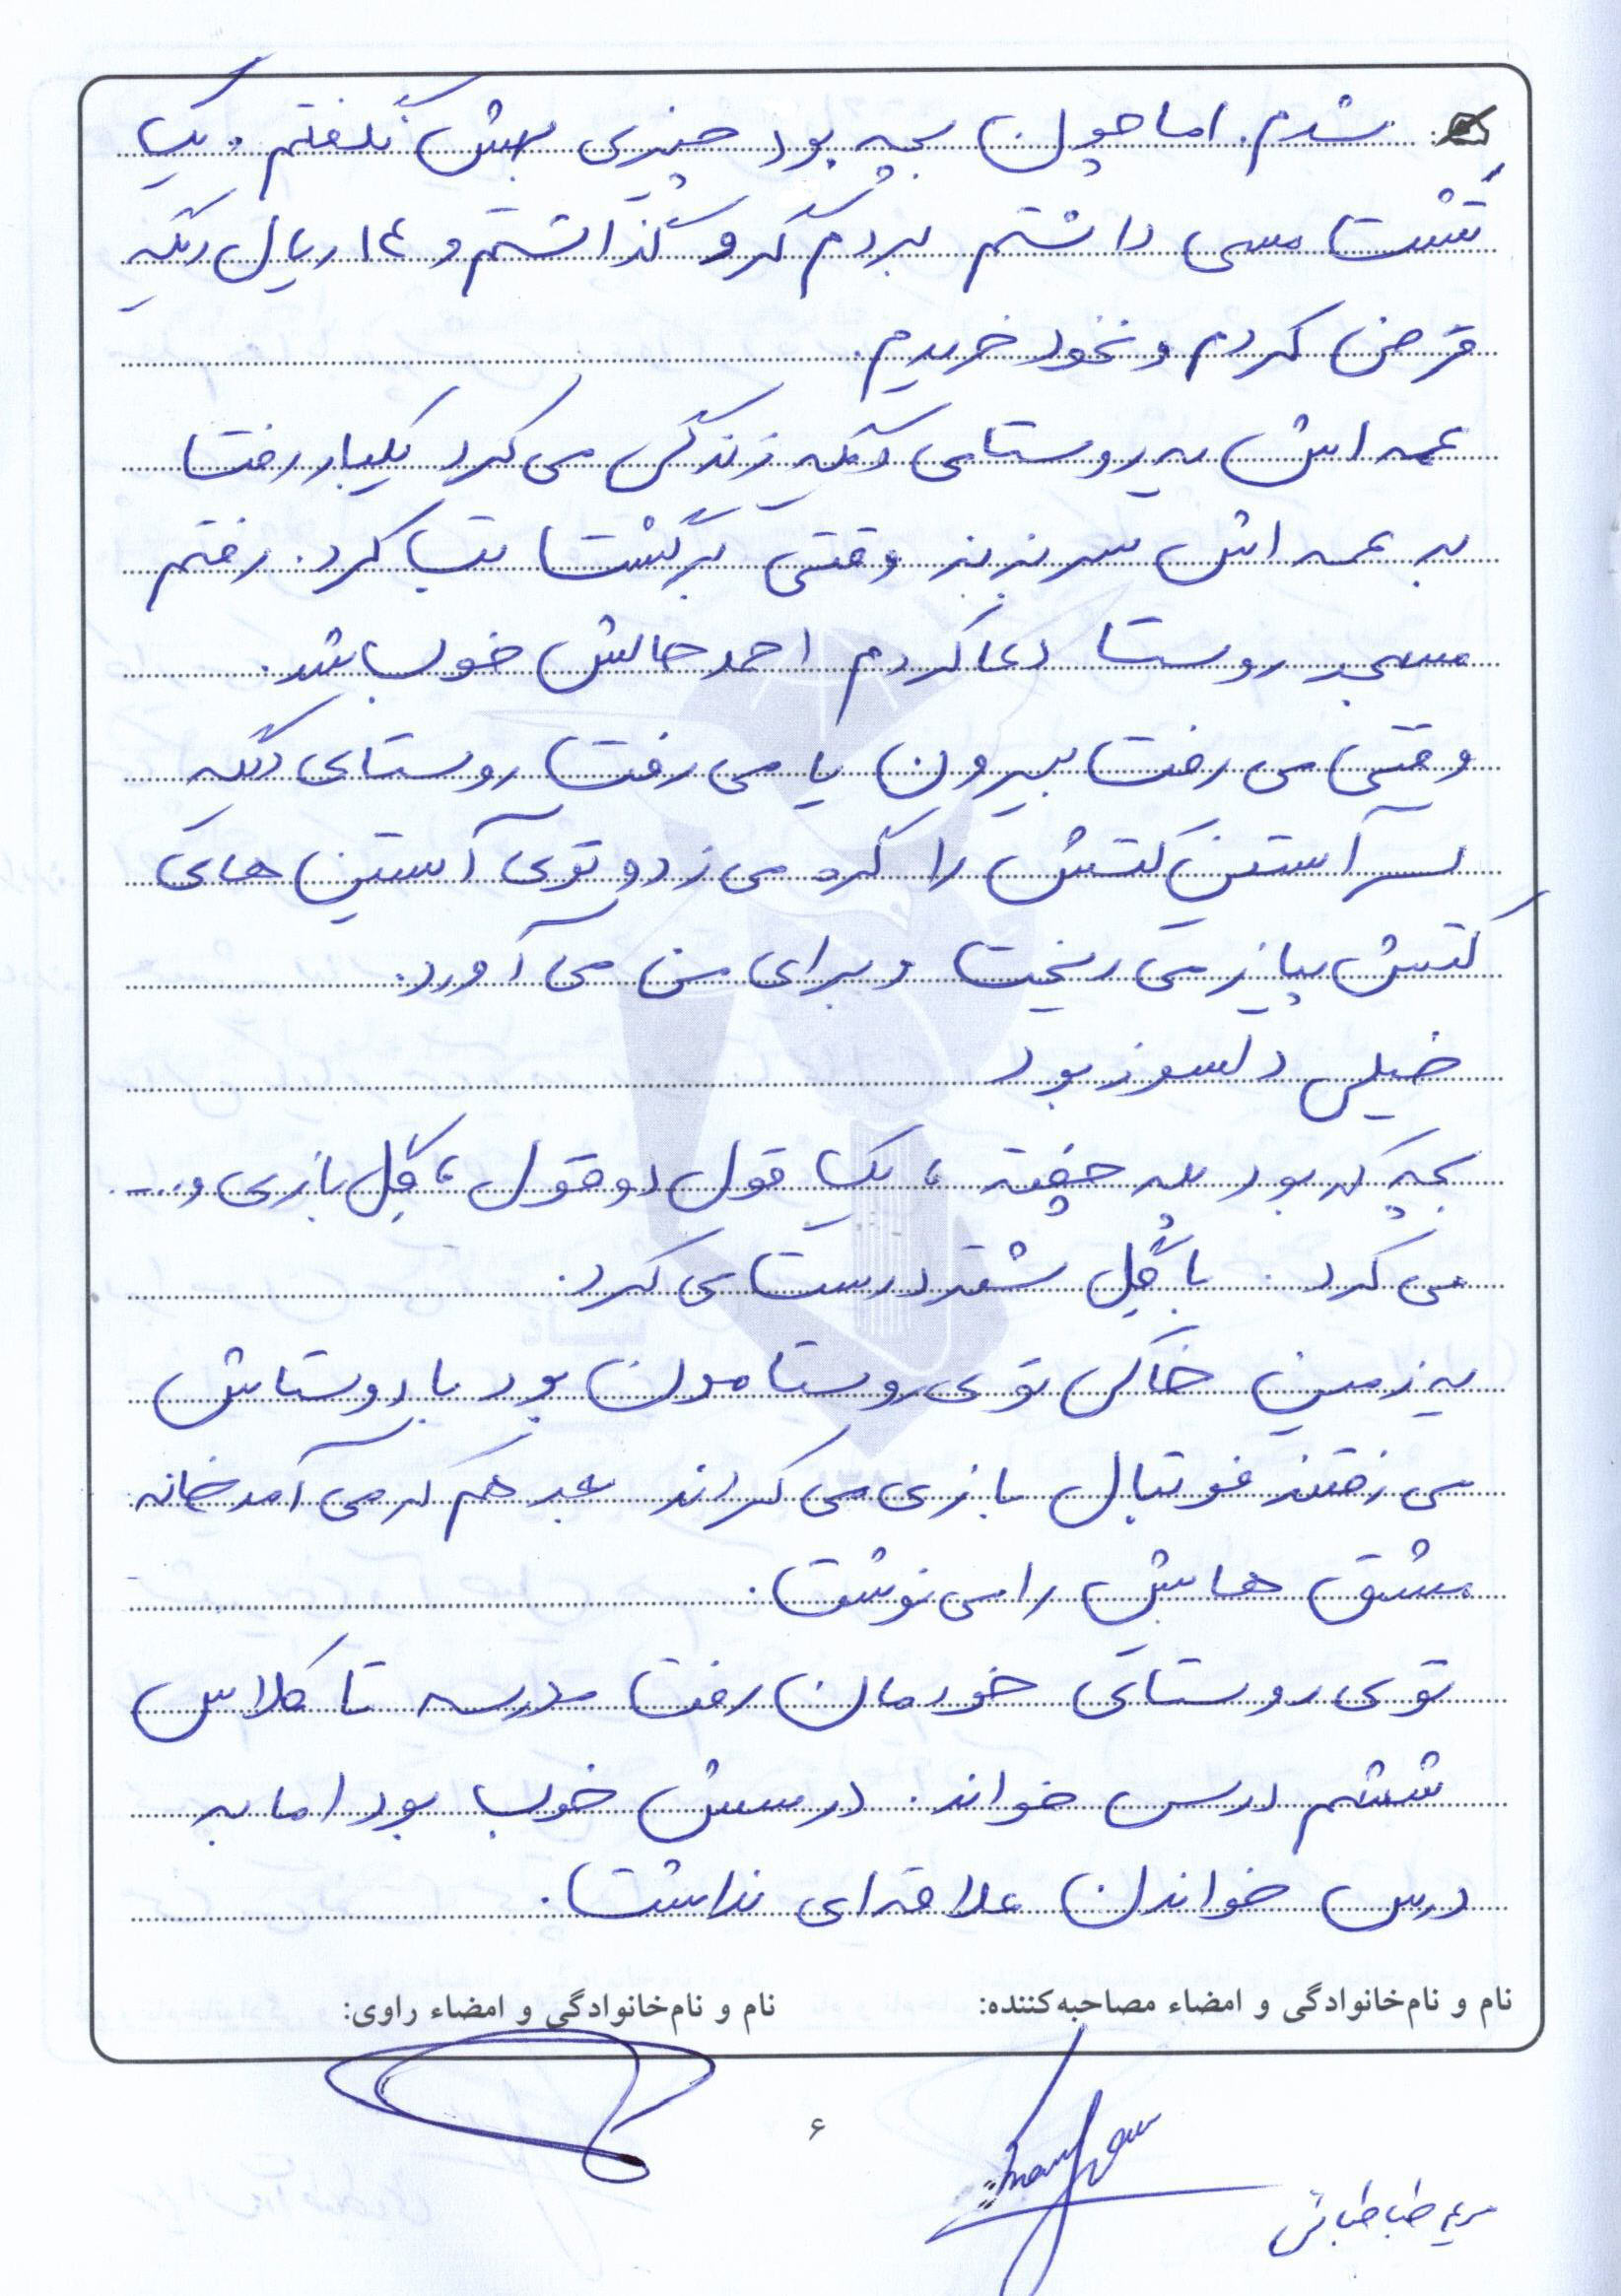 شدم. اما چون بچه بود چیزی بهش نگفتم و یک
تشت مسی داشتم بردم گرو گذاشتم و ۱۴ ریال دیگه
قرض کردم و نخود خریدم.
عمه اش یه روستای دیگه زندگی می کرد یکبار رفت
به عمه اش سر بزند وقتی برگشت تب کرد. رفتم
مسجد روستا دعا کردم احمد حالش خوب شد.
وقتی می رفت بیرون یا می رفت روستای دیگه
سر آستین کتش را گره می زد و توی آستین های
کتش پیاز می ریخت و برای من می آورد.
خیلی دلسوز بود
بچه که بود پله چفته، یک قول دو قول، گِل بازی و....
می کرد. با گِل شتر درست می کرد.
یه زمین خاکی توی روستامون بود با دوستاش
می رفتند فوتبال بازی می کردند بعد هم که می آمد خانه
مشق هایش را می نوشت.
توی روستای خودمان رفت مدرسه تا کلاس
ششم درس خواند. درسش خوب بود اما به
درس خواندن علاقه ای نداشت.
نام و نام‌خانوادگی و امضاء مصاحبه‌کننده:
نام و نام‌خانوادگی و امضاء راوی:
۶
مریم طباطبائی